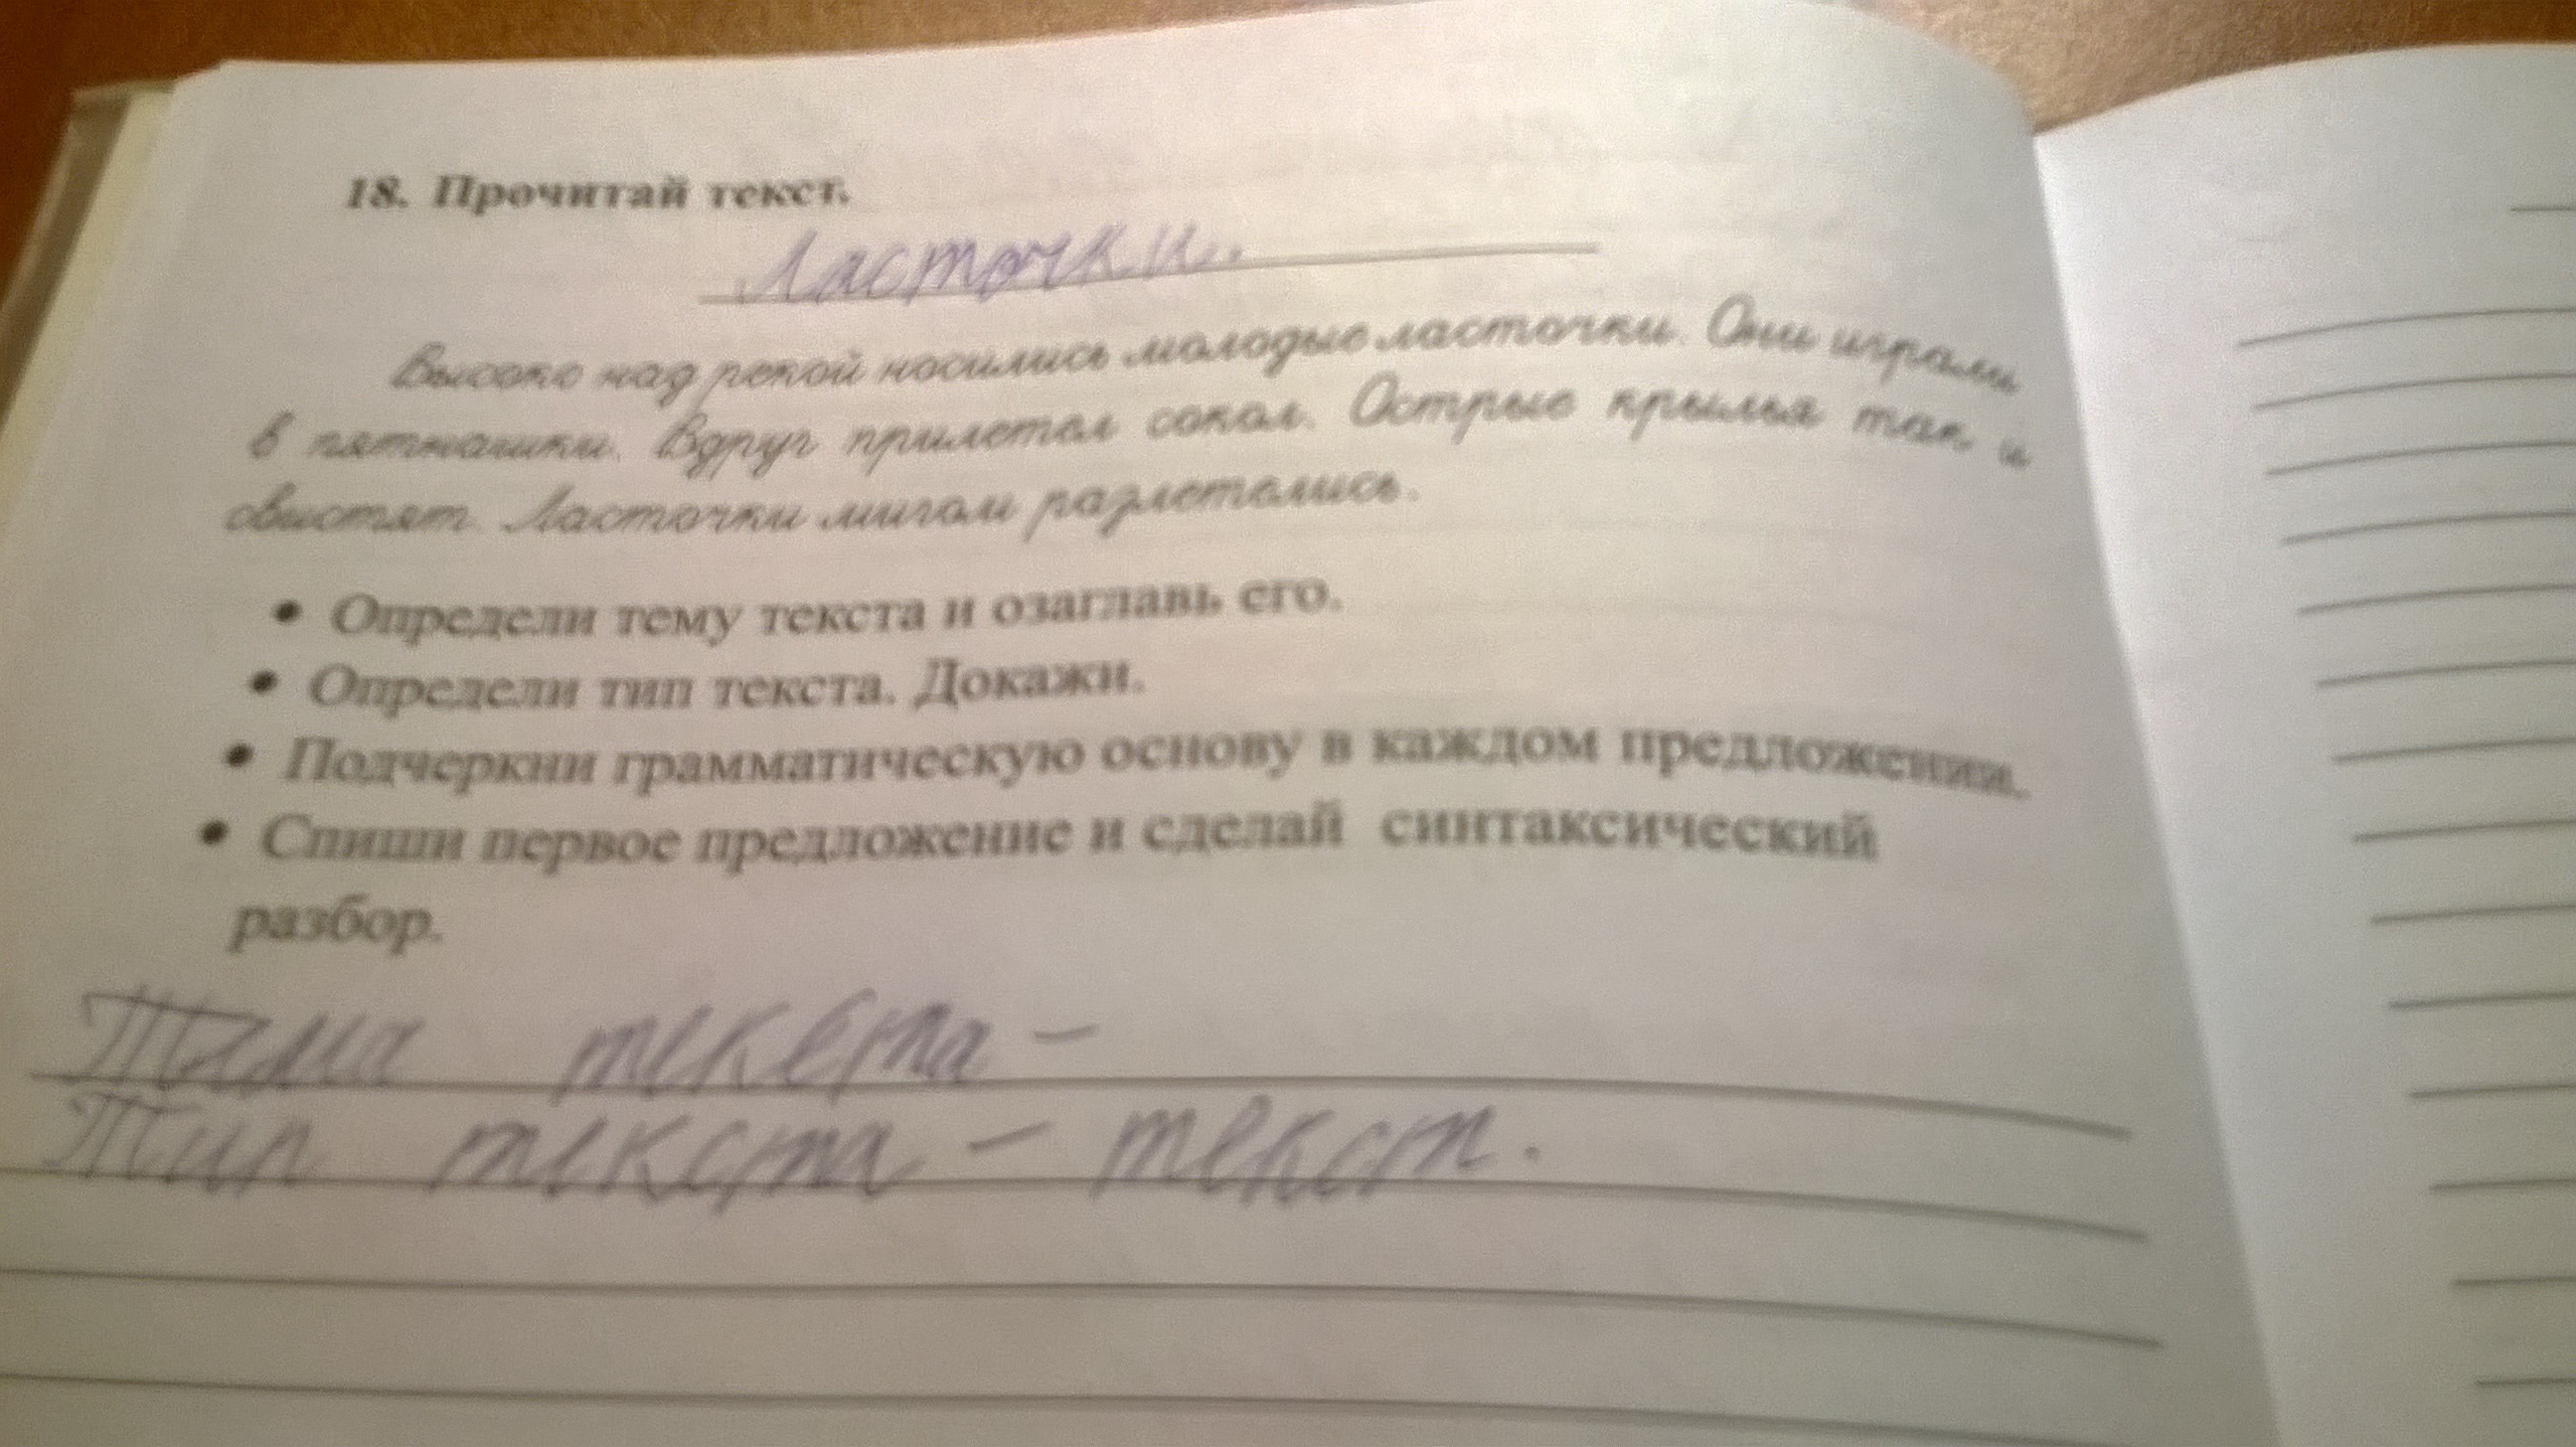 18. Прочитай текст.
Ласточки.
Высоко над рекой носились молодые ласточки. Они играли
в пятнашки. Вдруг прилетел сокол. Острые крылья так и
свистят. Ласточки мигом разлетелись.
• Определи тему текста и озаглавь его.
• Определи тип текста. Докажи.
• Подчеркни грамматическую основу в каждом предложении.
• Спиши первое предложение и сделай синтаксический
разбор.
Тема текста –
Тип текста – текст.